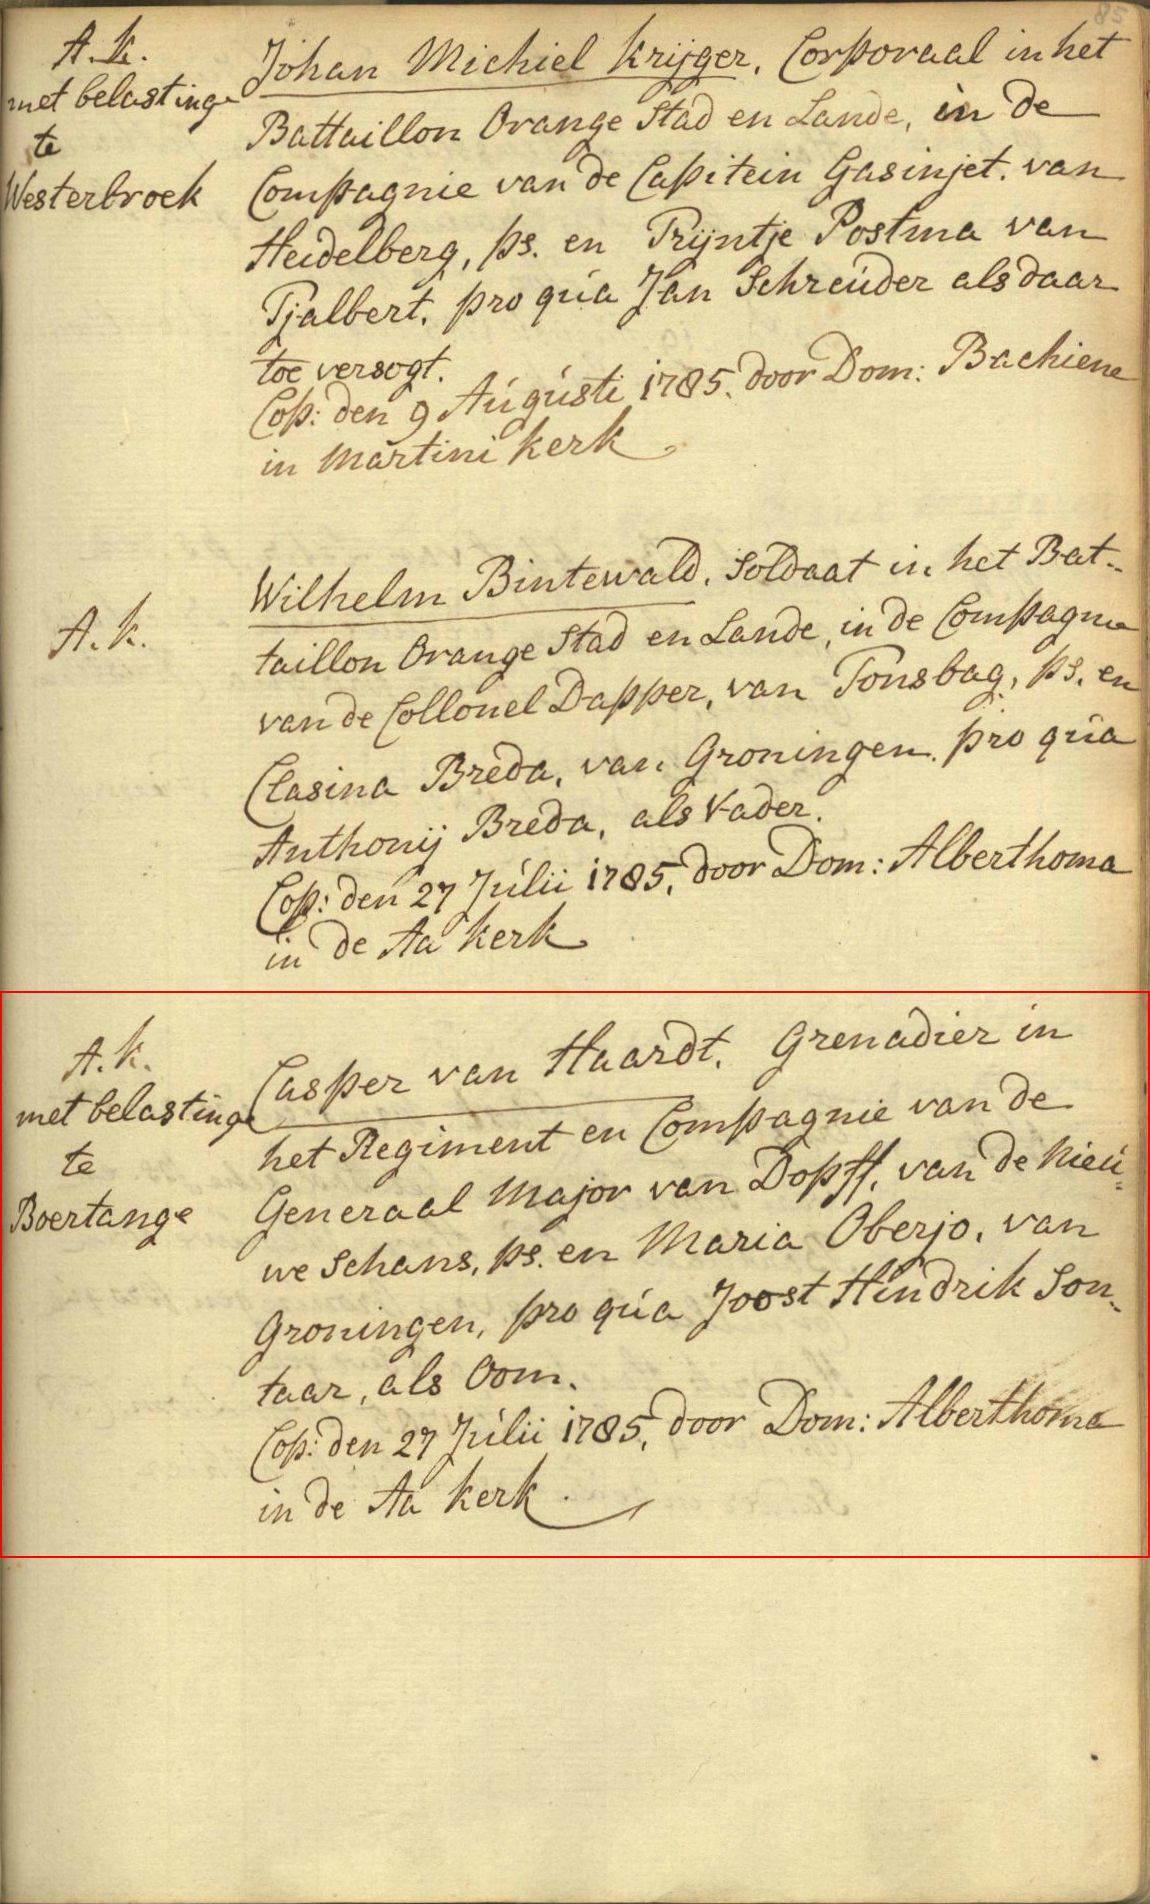 85
A. k.
met belastinge
te
Westerbroek
Johan Michiel Krijger, Corporaal in het
Battaillon Orange Stad en Lande, in de
Compagnie van de Capitein Gasinjet. van
Heidelberg, ps. en Trijntje Postma van
Tjalbert. pro qúa Jan Schreúder als daar
toe versogt.
Cop: den 9 Aúgústi 1785. door Dom: Bachiene
in Martini kerk
A. k.
Wilhelm Bintewald, Soldaat in het Bat-
taillon Orange Stad en Lande, in de Compagnie
van de Collonel Dapper, van Tonsbag, ps. en
Clasina Breda, van Groningen. pro qúa
Anthonij Breda, als Vader.
Cop: den 27 Júlii 1785, door Dom: Alberthoma
in de Aa kerk
A. k.
met belastinge
te
Boertange
Casper van Haardt, Grenadier in
het Regiment en Compagnie van de
Generaal Major van Dopff, van de Nieú-
we Schans, ps. en Maria Oberjo, van
Groningen, pro qúa Joost Hindrik Son-
taar, als Oom.
Cop: den 27 Júlii 1785, door Dom: Alberthoma
in de Aa kerk.